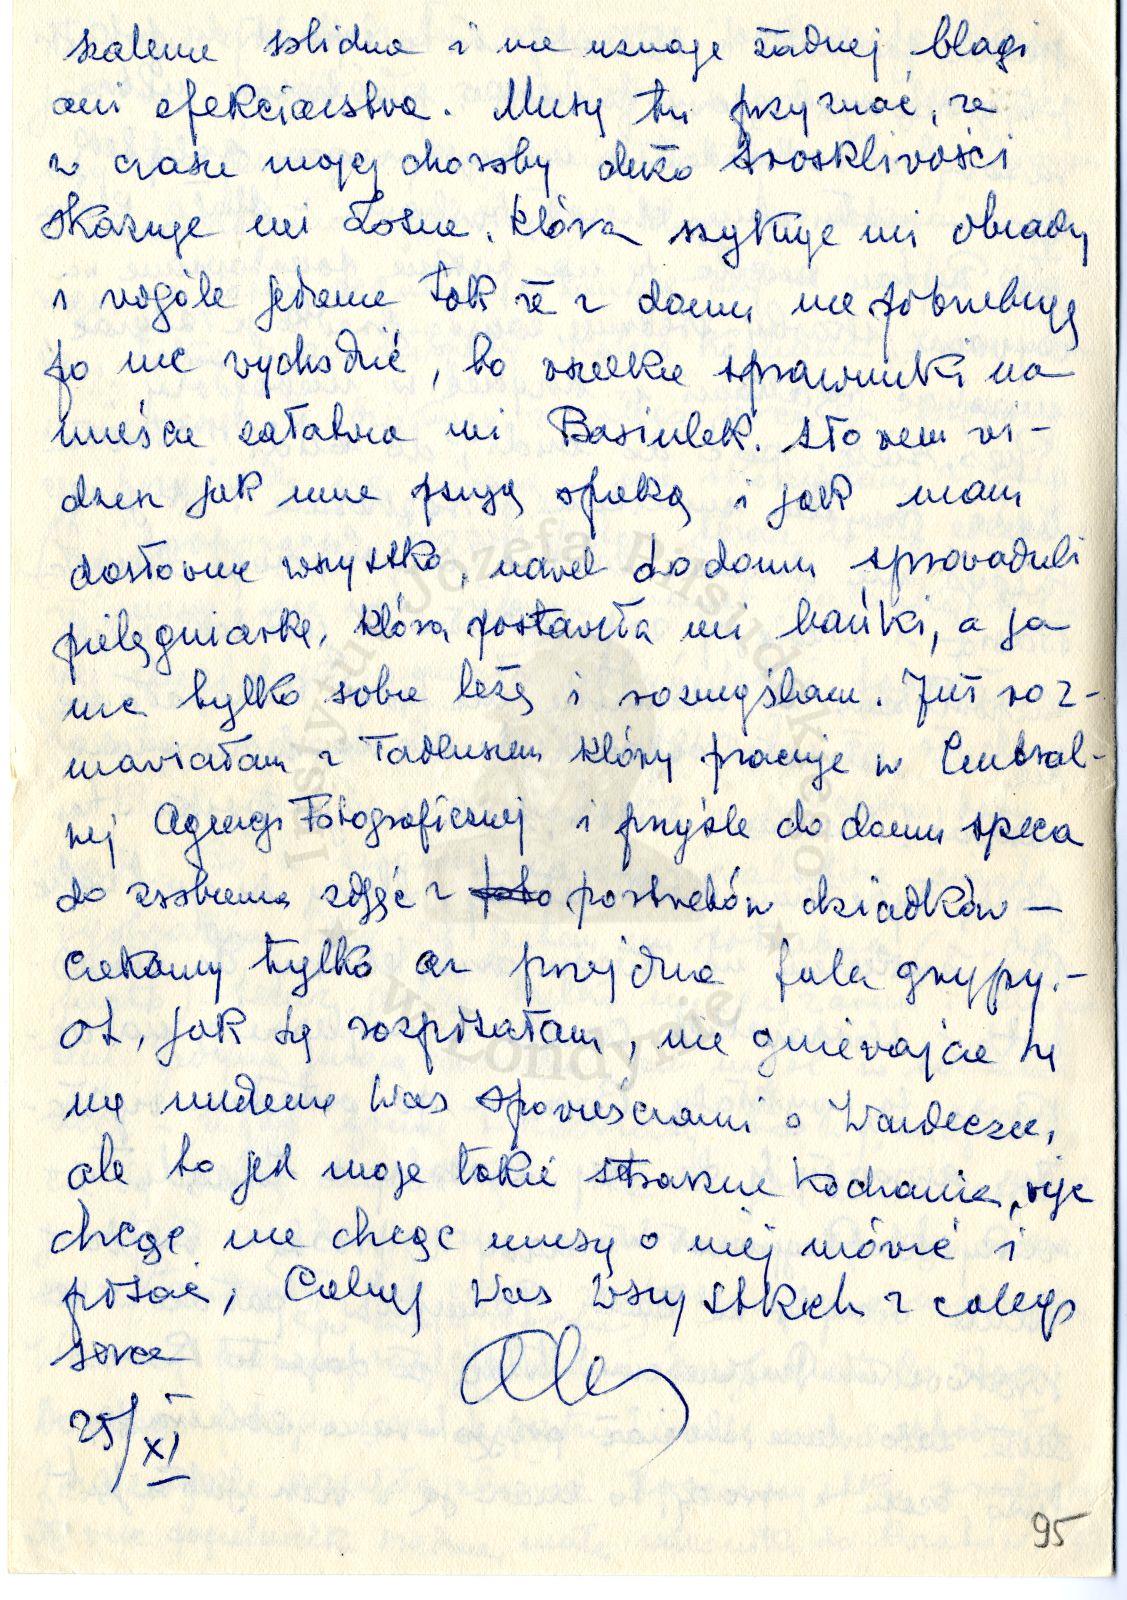 szalenie solidna i nie uznaje żadnej blagi
ani efekciarstwa. Muszę tu przyznać, że
w czasie mojej choroby dużo troskliwości
okazuje mi Bożena, która szykuje mi obiady
i wogóle jedzenie tak że z domu nie potrzebuję
po nic wychodzić, bo wszelkie sprawunki na
mieście załatwia mi Basiulek. Słowem wi-
dzen jak mnie pieką i jak mam
dosłownie wszystko, nawet do domu sprowadzili
pielęgniarkę, która postawiła mi bańki, a ja
nic tylko sobie leżę i rozmyślam. Już roz-
mawiałam z Tadeuszem który pracuje w Central-
nej Agencji Fotograficznej i przyśle do domu speca
do zrobienia zdjęć z portretów dziadków —
czekamy tylko aż przejdzie fala grypy. –
Ot, jak się rozpisałam, nie gniewajcie się
na nudzenie Was opowieściami o Wandeczce,
ale to jest moje takie straszne kochanie, więc
chcąc nie chcąc muszę o niej mówić i
pisać, Całuję Was wszystkich z całego
serca
Ala
25/XI
95
Instytut Józefa Piłsudskiego
w Londynie